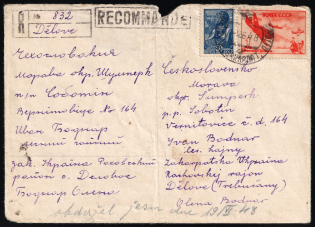 R № 832
Dělové
RECOMMANDÉ
ПОЧТА СССР
Чехословакия
Морава окр. Шумперк
п/п Соботин
Верниовице № 164
Иван Боднар
зак. Україна Раховский
район с. Деловое
Боднар Олена
Československo
Morava
okr. Šumperk
p.p. Sobotin
Vernišovice č.d. 164
Ivan Bodnar
les. hajny
Zakarpatska Ukraina
Rachovsky rajon
Dělove (Trebušany)
Olena Bodnar
obdržel jsem dne 19/IV 48